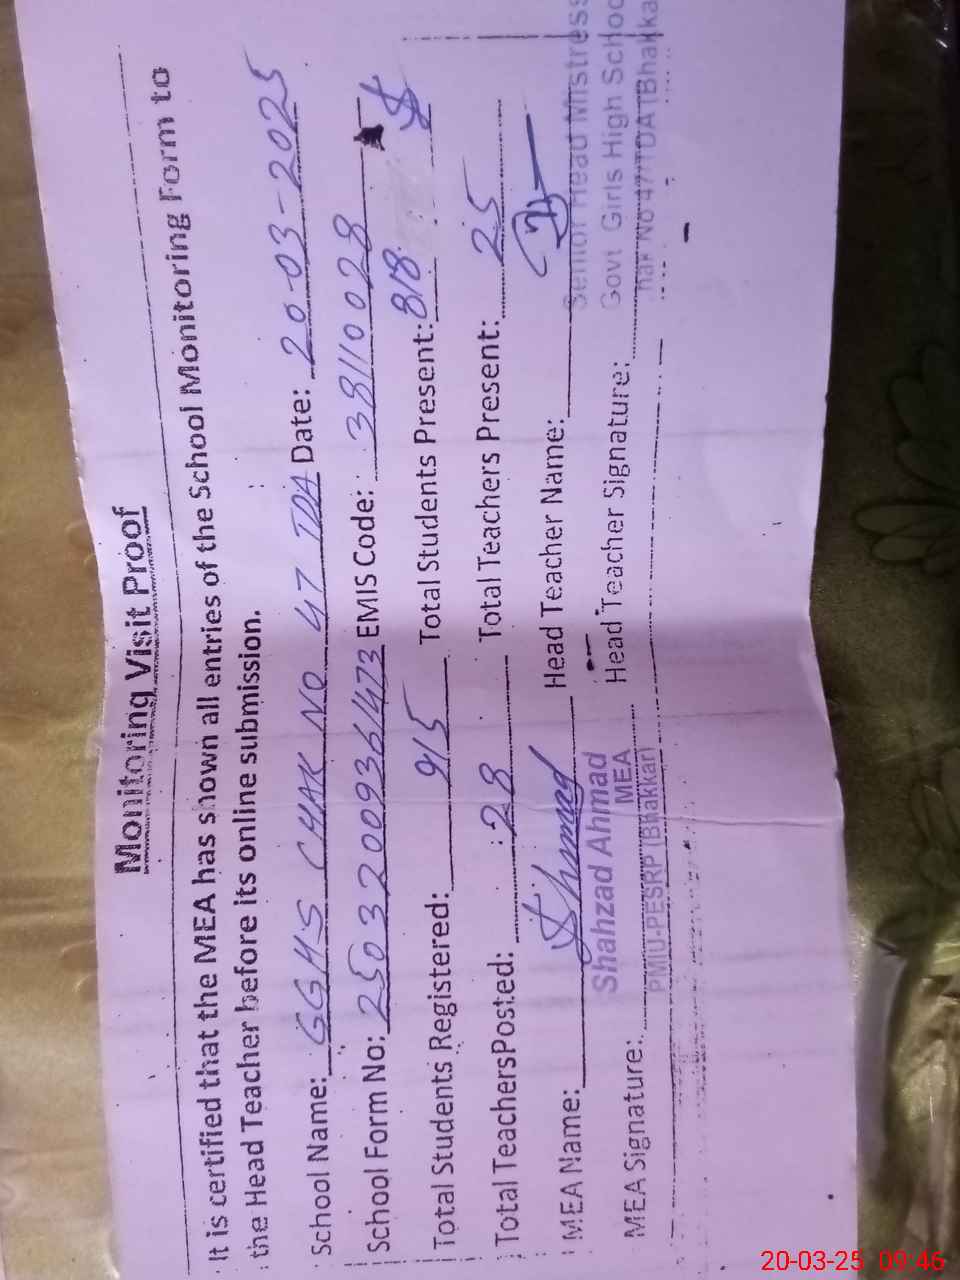 Monitoring Visit Proof
It is certified that the MEA has shown all entries of the School Monitoring Form to
the Head Teacher before its online submission.
School Name: GGHS CHAK NO 47 TDA Date: 20-03-2025
School Form No: 25032009361473 EMIS Code: 38110028
Total Students Registered: 915 Total Students Present: 818
Total TeachersPosted: 28 Total Teachers Present: 25
MEA Name: Head Teacher Name:
Shahzad Ahmad
MEA
PMIU-PESRP (Bhakkar)
Senior Head Mistress
Govt Girls High School
hak No 47/TDA (Bhakka
MEA Signature: Head Teacher Signature:
20-03-25 09:46